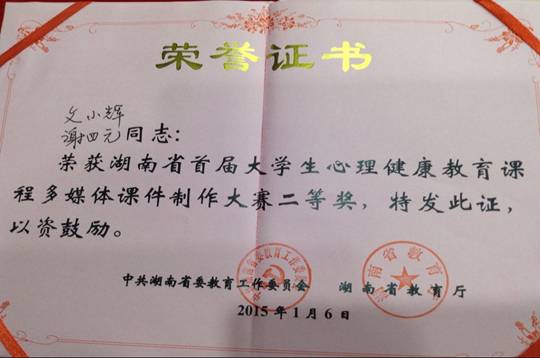 荣誉证书
文小辉
谢四元同志：
荣获湖南省首届大学生心理健康教育课
程多媒体课件制作大赛二等奖，特发此证，
以资鼓励。
中共湖南省委教育工作委员会 湖南省教育厅
2015年1月6日